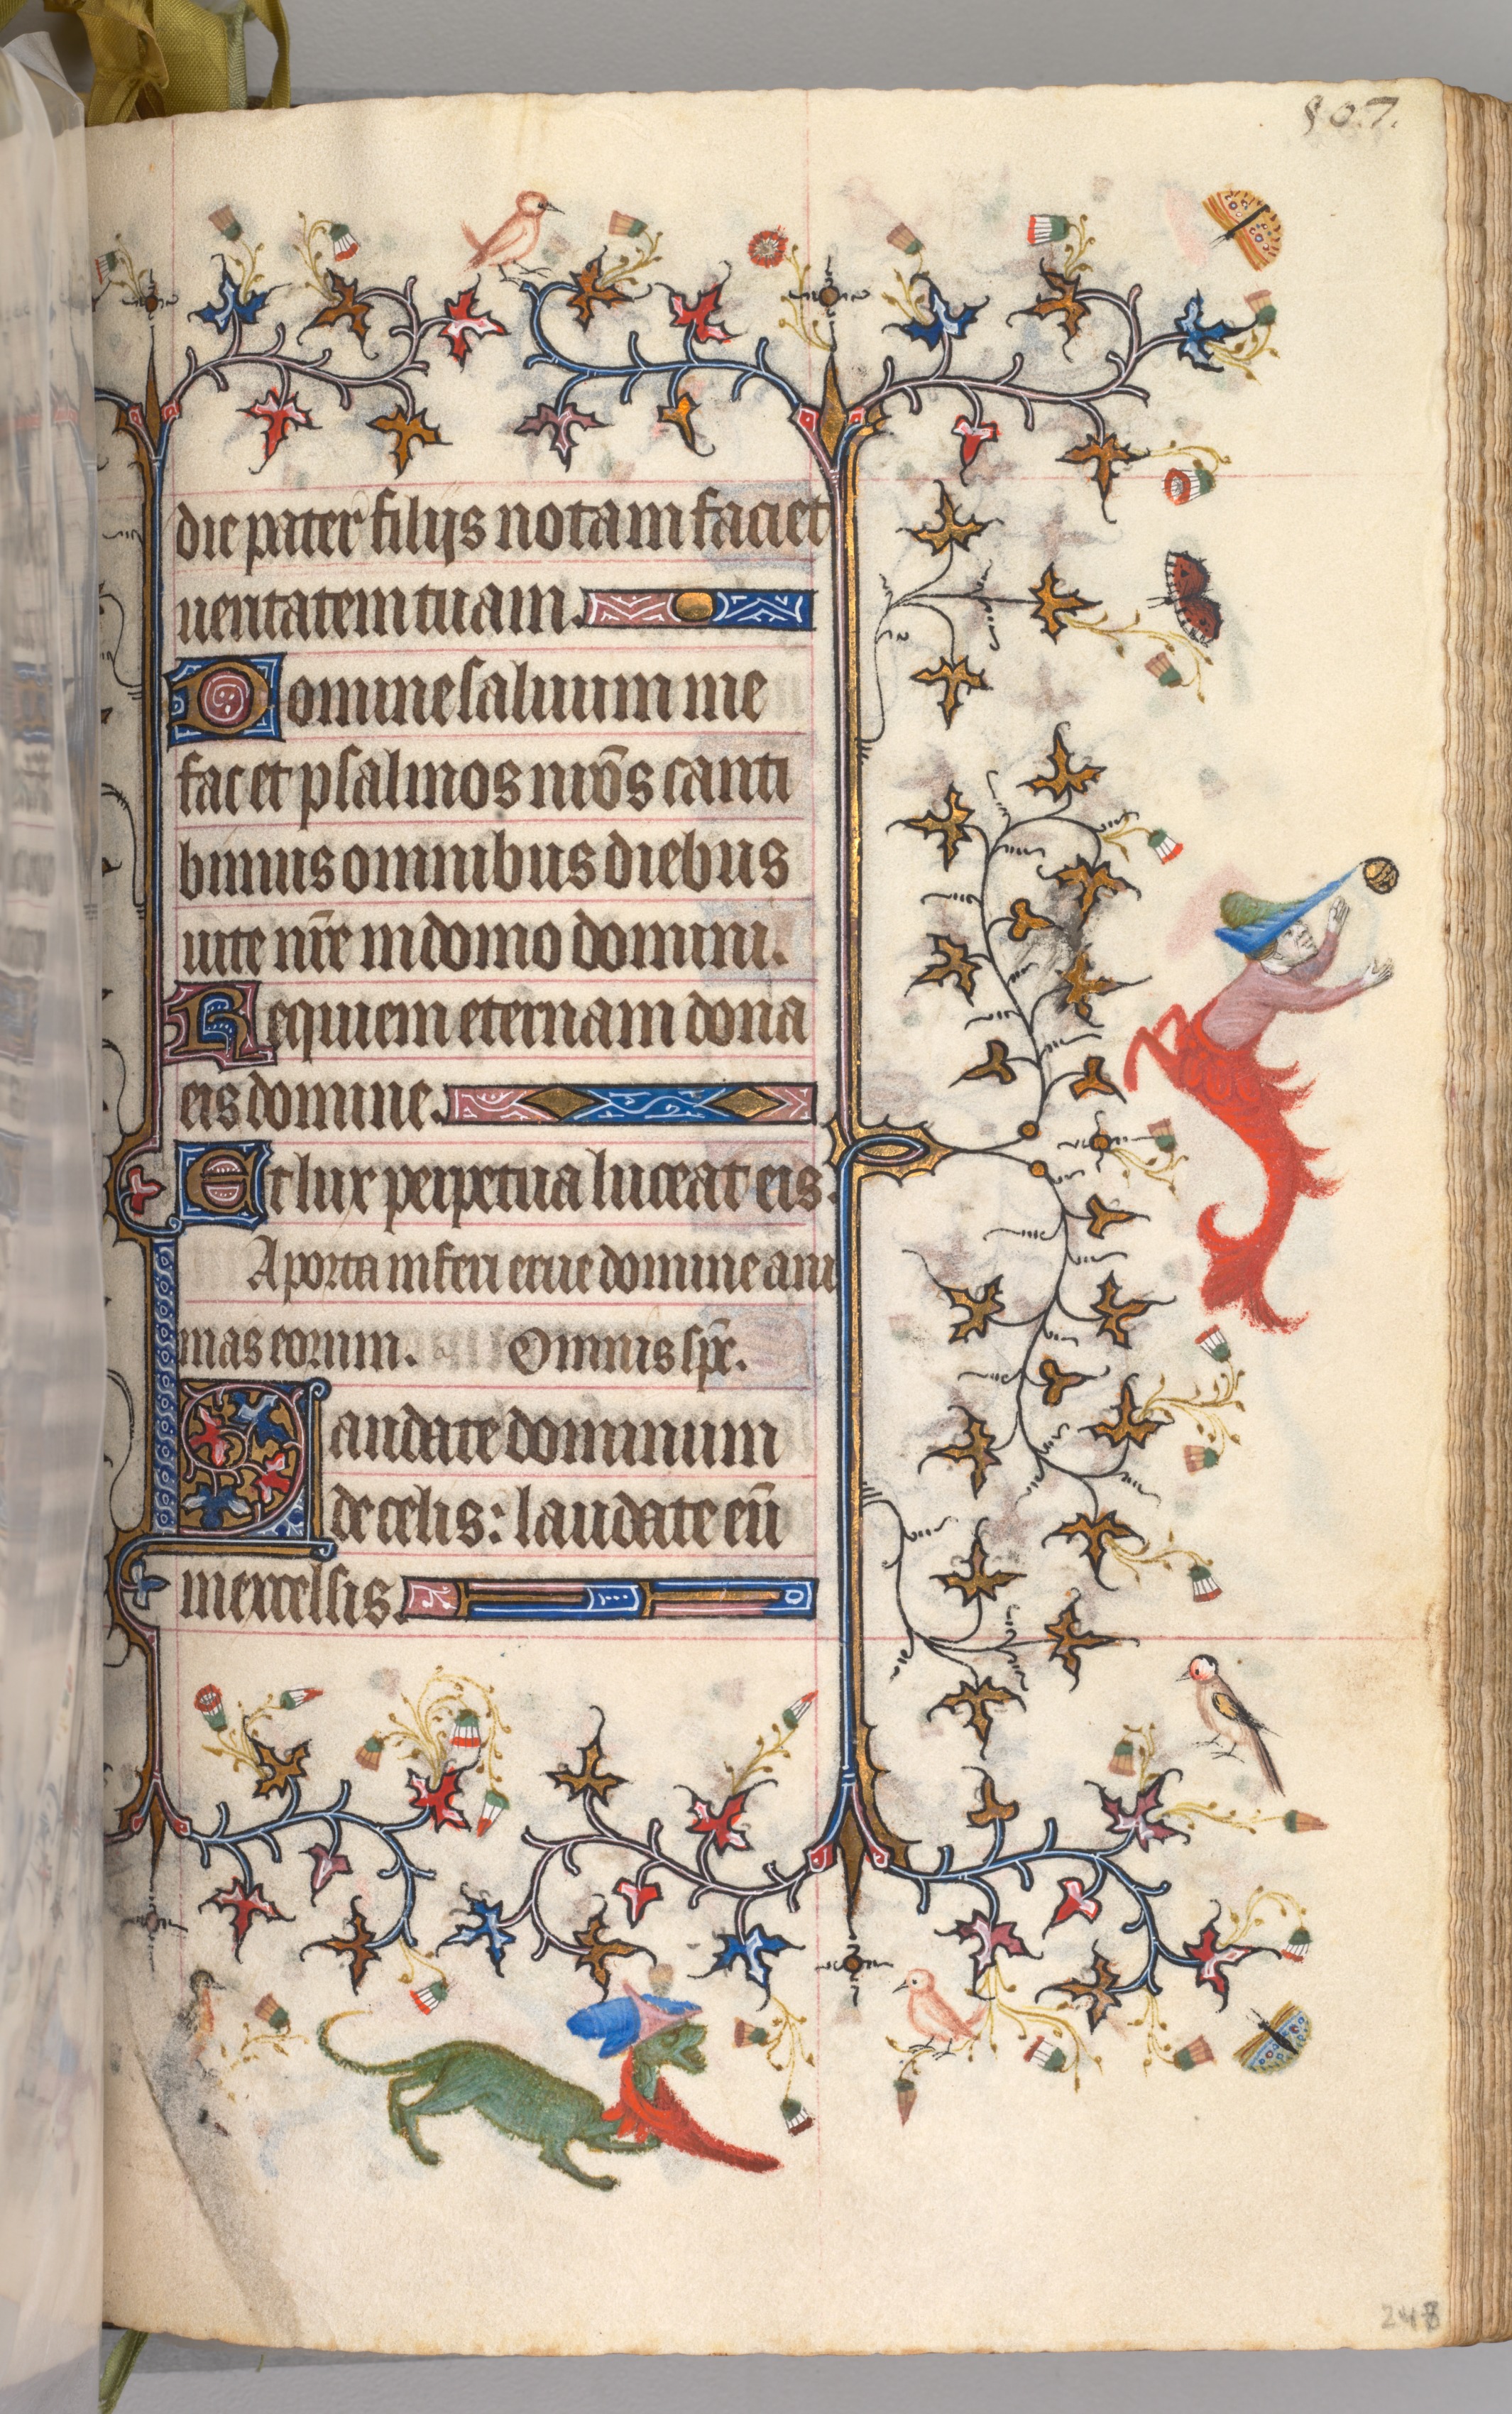 807.
die pater filijs notam faciet
ueritatem tuam.
Domine saluum me
fac et psalmos nr̄os canta
bimus omnibus diebus
uite nr̄e in domo domini.
Requiem eternam dona
eis domine.
Et lux perpetua luceat eis.
A porta inferi erue domine ani
mas eorum. Omnis sp̄c.
Laudate dominum
de celis: laudate eū
in excelsis.
248